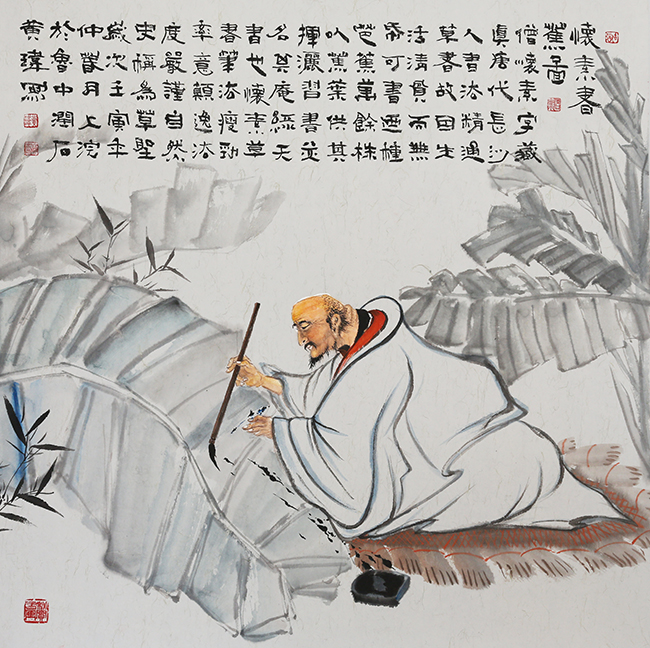 懷素書
蕉圖
僧懷素字藏
真唐代長沙
人書法精通
草書故因生
活清貧而無
帋可書迺種
芭蕉萬餘株
以蕉葉供其
揮灑習書並
名其庵綠天
書也懷素草
書筆法瘦勁
率意顛逸法
度嚴謹自然
史稱為草聖
歲次壬寅年
仲月上浣
於魯中潤石
黃瑋寫